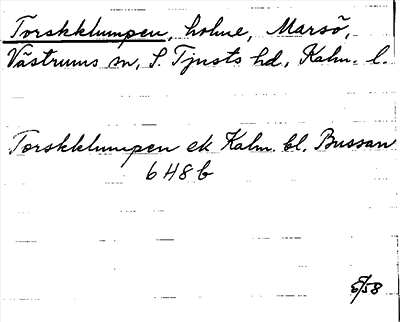 Torskklumpen, holme, Marsö,
Västrums sn, S. Tjusts hd, Kalm. l.
Torskklumpen ek Kalm. bl. Bussan
6 H 8 b
5/58